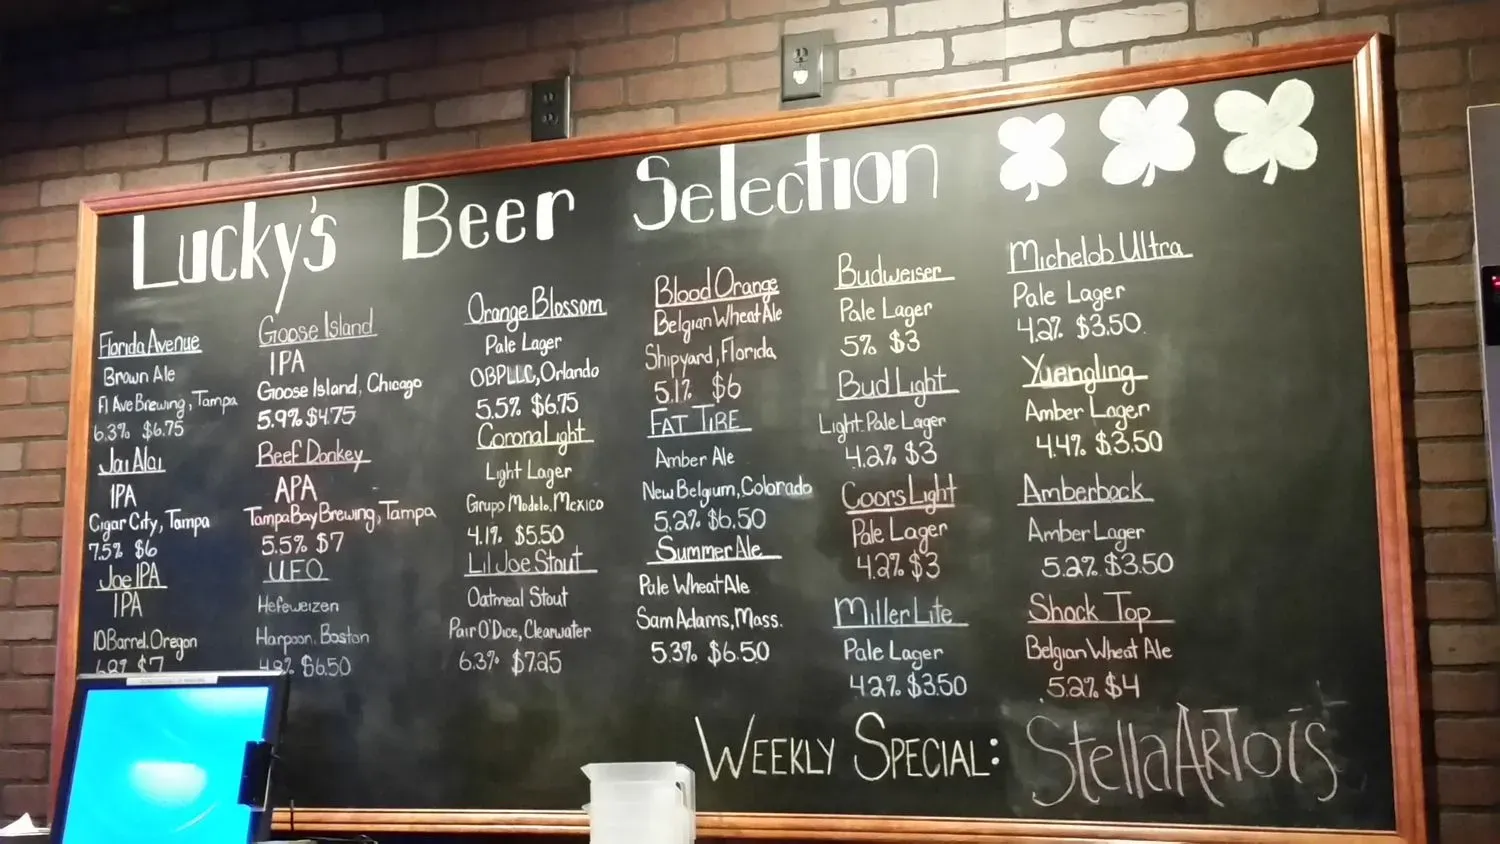 Lucky's Beer Selection
Florida Avenue
Brown Ale
Fl Ave Brewing, Tampa
6.3% $6.75
Jai Alai
IPA
Cigar City, Tampa
7.5% $6
Joe IPA
IPA
10 Barrel, Oregon
$7
Goose Island
IPA
Goose Island, Chicago
5.9% $4.75
Beef Donkey
APA
Tampa Bay Brewing, Tampa
5.5% $7
UFO
Hefeweizen
Harpoon, Boston
4.8% $6.50
Orange Blossom
Pale Lager
OBPLLC, Orlando
5.5% $6.75
Corona Light
Light Lager
Grupo Modelo, Mexico
4.1% $5.50
Lil Joe Stout
Oatmeal Stout
Pair O'Dice, Clearwater
6.3% $7.25
Blood Orange
Belgian Wheat Ale
Shipyard, Florida
5.1% $6
FAT TIRE
Amber Ale
New Belgium, Colorado
5.2% $6.50
Summer Ale
Pale Wheat Ale
Sam Adams, Mass.
5.3% $6.50
Budweiser
Pale Lager
5% $3
Bud Light
Light Pale Lager
4.2% $3
Coors Light
Pale Lager
4.2% $3
Miller Lite
Pale Lager
4.2% $3.50
Michelob Ultra
Pale Lager
4.2% $3.50
Yuengling
Amber Lager
4.4% $3.50
Amberbock
Amber Lager
5.2% $3.50
Shock Top
Belgian Wheat Ale
5.2% $4
WEEKLY SPECIAL: Stella ARTois